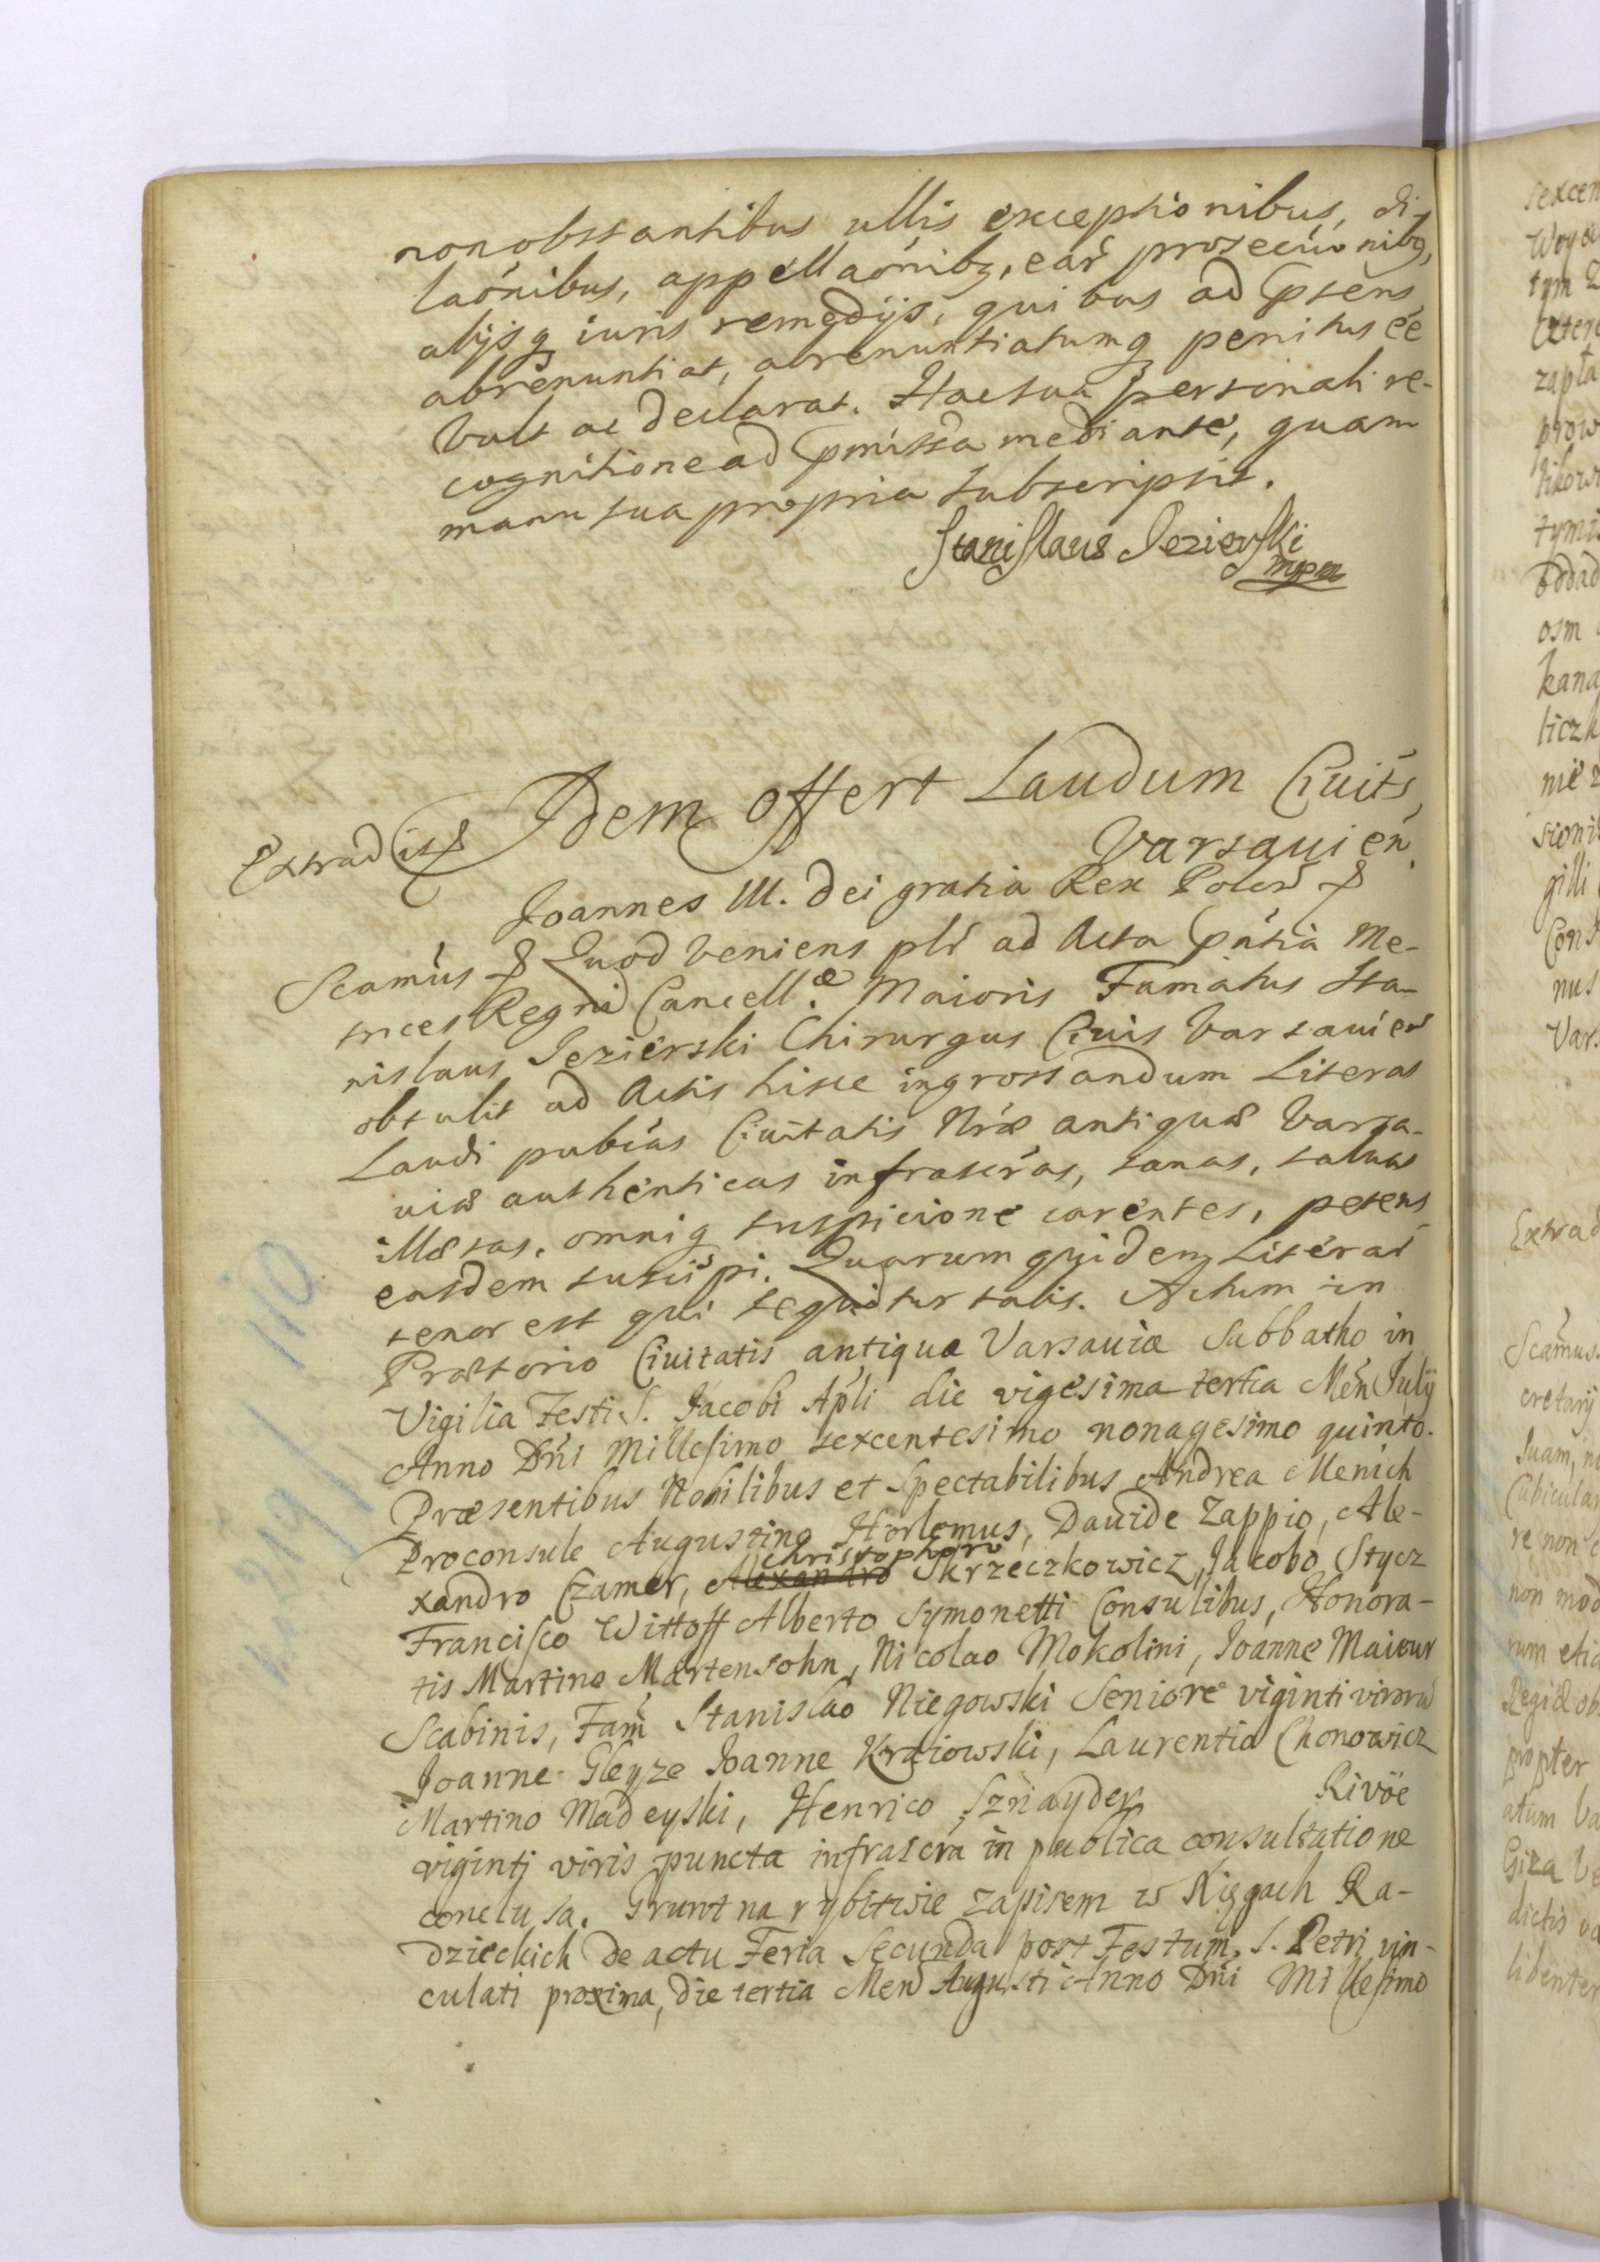 nonobstantibus ullis exceptionibus, di-
laõnibus, appellaõnibq, eař prosecũõnibq,
alijsq iuris remedijs, quibus ad psens
abrenuntiat, abrenuntiatumq penitus ẽe
vult ac declarat. Hac sua personali re-
cognitione ad pmissa mediante, quam
manu sua propria subscripsit.
Stanislaus Jezierski
mppa
Idem offert Laudum Ciuits
Extradit
Varsauień.
Joannes III. Dei gratia Rex Poloń
Scamus Quod veniens plr ad Acta pntia Me-
trices Regni Cancellæ Maioris Famatus Sta-
nislaus Jezierski Chirurgus Ciuis Varsauień
obtulit ad Actis hisce ingrossandum Literas
Laudi pubcas Ciuitatis Nræ antiquæ Varsa-
uiæ authenticas infrascras, sanas, saluas
illæsas, omniq suspicione carentes, petens
easdem suscipi. Quarum quidem Literař
tenor est qui sequitur talis. Actum in
Prætorio Ciuitatis antiquæ Varsauiæ Sabbatho in
Vigilia Festi S. Jacobi Apli die vigesima tertia Men July
Anno Dñi Millesimo sexcentesimo nonagesimo quinto.
Præsentibus Nobilibus et Spectabilibus Andrea Menich
Proconsule Augustino Horlemus, Dauide Zappio, Ale-
christophoro
xandro Czamer, Alexandro Skrzeczkowicz, Jacobo Stycz
Francisco Wittoff Alberto Symonetti Consulibus, Honora-
tis Martino Martensohn, Nicolao Mokolini, Joanne Maiour
Scabinis, Fam Stanislao Niegowski Seniore viginti viroru
Joanne Gleyze Joanne Kraiowski, Laurentio Chonowicz
Martino Madeyski, Henrico Sznayder Rivoe
viginti viris puncta infrascra in publica consultatione
conclusa. Grunt na rybitwie zapisem w Xięgach Ra-
dzieckich de actu Feria Secunda post Festum S. Petri vin-
culati proxima, die tertia Men Augusti Anno Dñi Millesimo
110